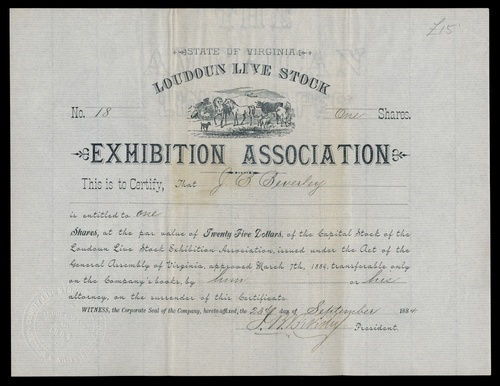 £15
STATE OF VIRGINIA.
LOUDOUN LIVE STOCK
No. 18 One Shares.
EXHIBITION ASSOCIATION
This is to Certify, That J. B. Beverley
is entitled to one
Shares, at the par value of Twenty Five Dollars, of the Capital Stock of the
Loudoun Live Stock Exhibition Association, issued under the Act of the
General Assembly of Virginia, approved March 7th, 1884, transferable only
on the Company's books, by him or his
attorney, on the surrender of this Certificate
WITNESS, the Corporate Seal of the Company, hereto affixed, the day of September 188
President.